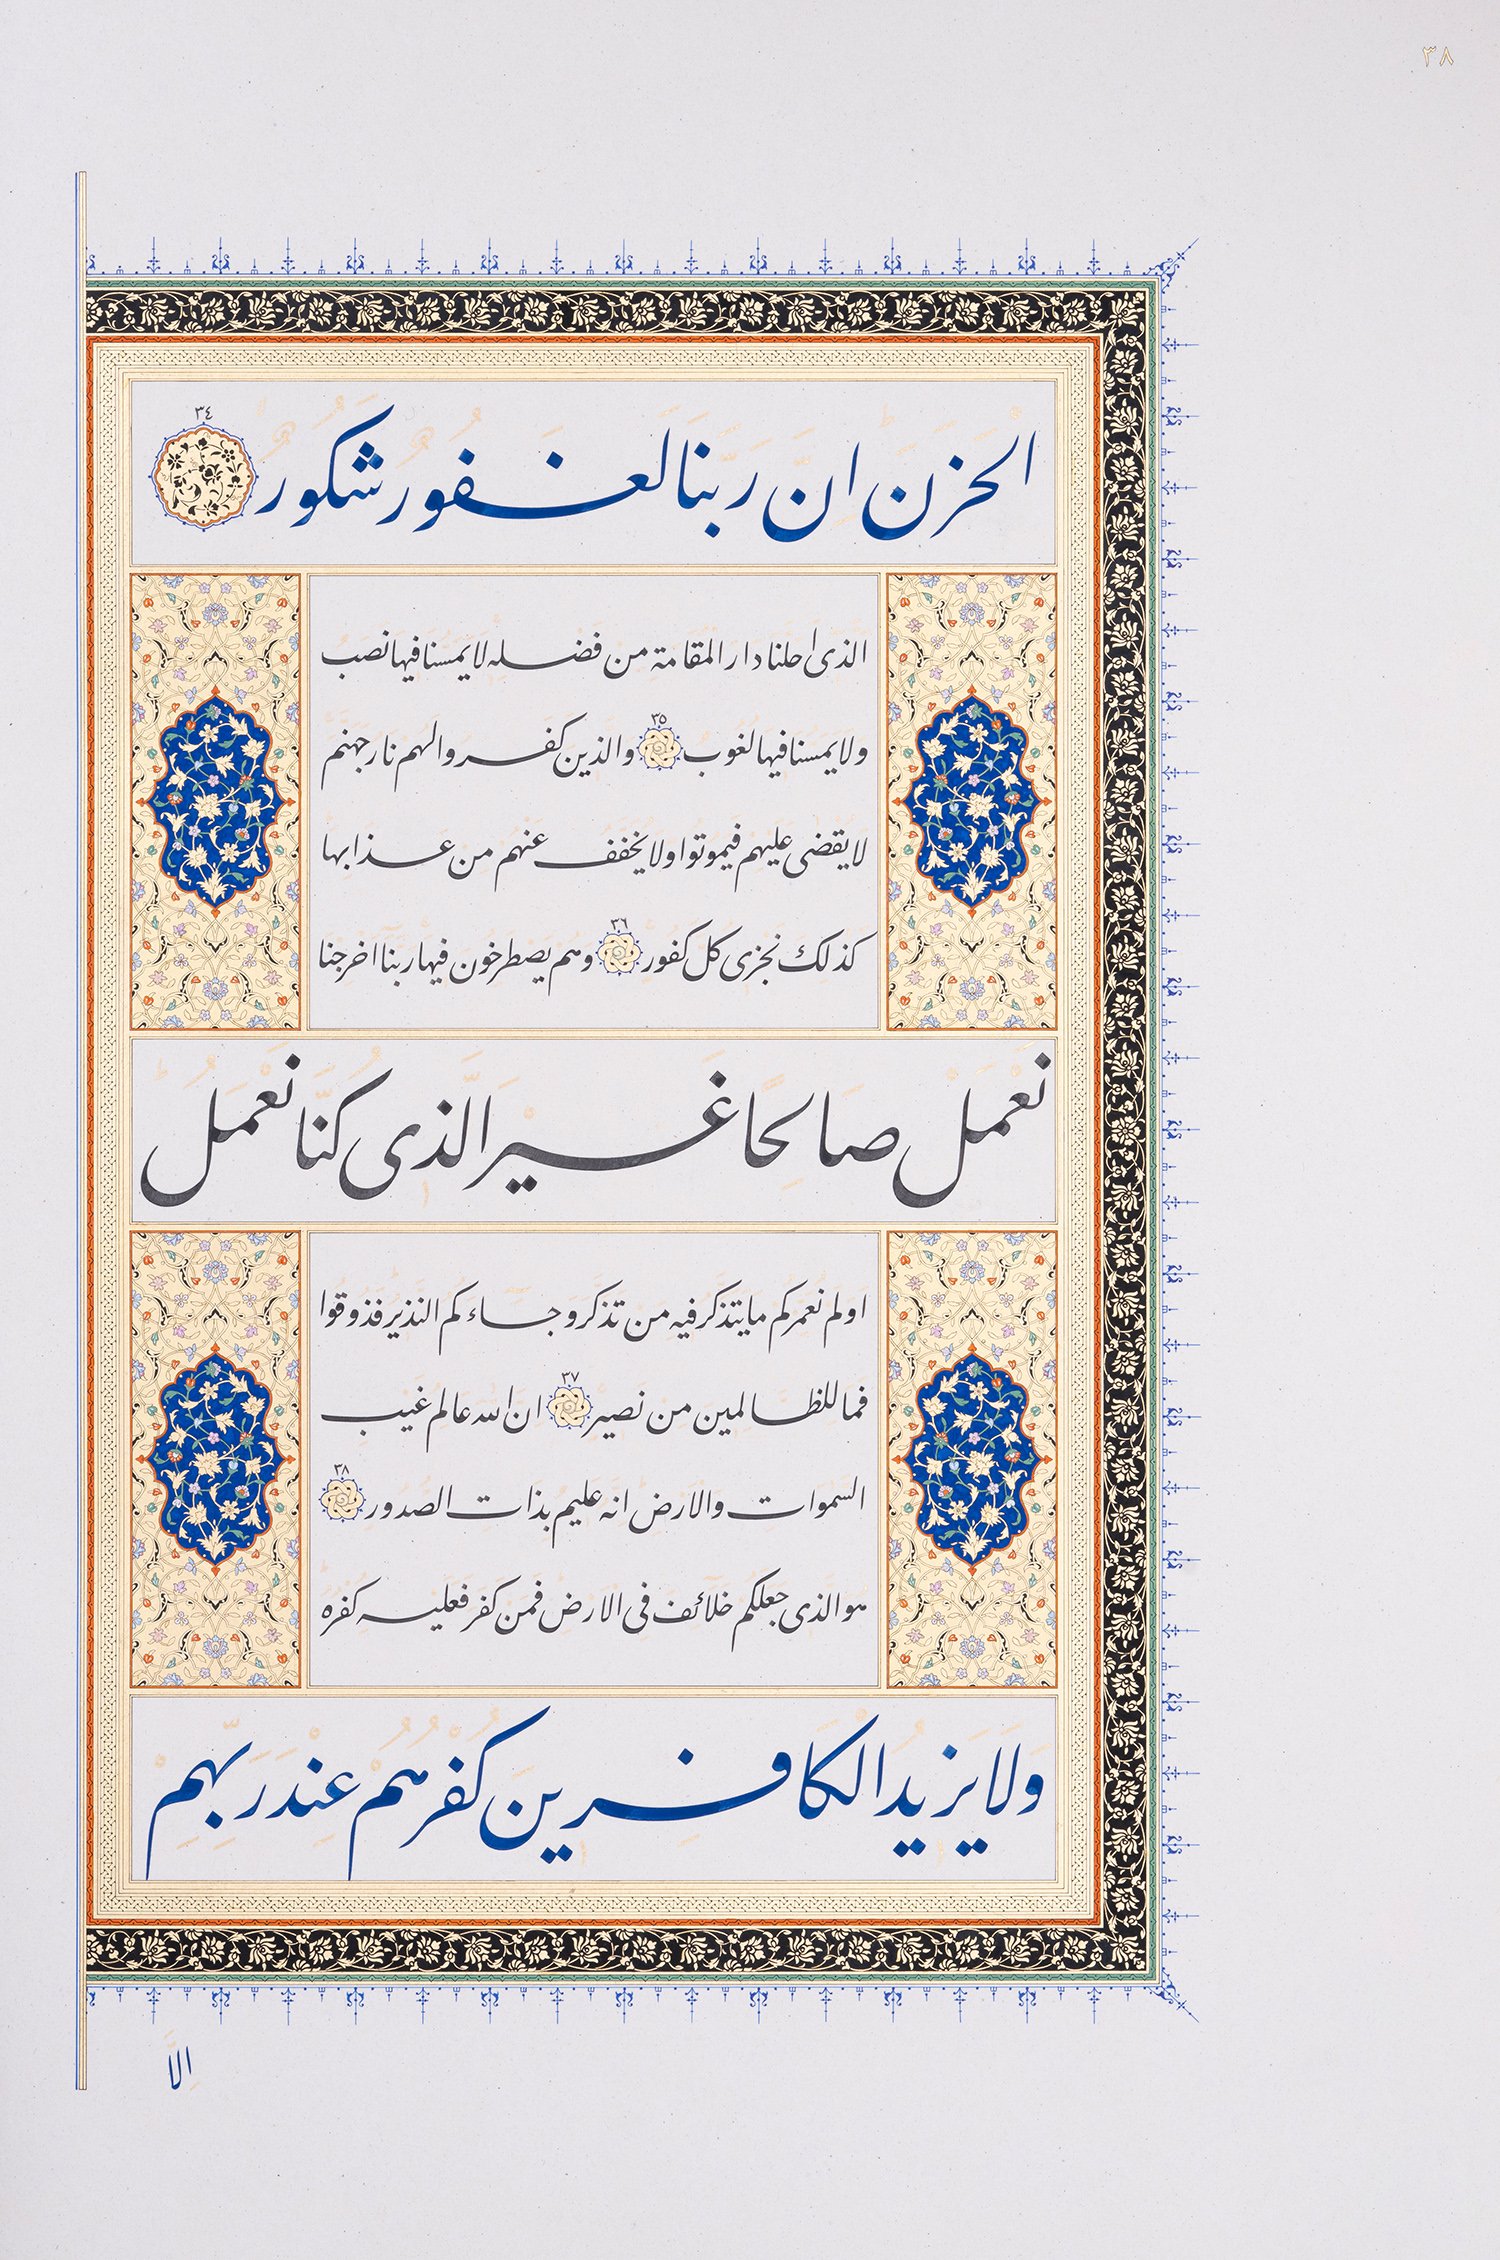 ٣٨
الحزن ان ربنا لغفور شكور ٣٤
الذى احلنا دار المقامة من فضله لا يمسنا فيها نصب
ولا يمسنا فيها لغوب ٣٥ والذين كفروا لهم نار جهنم
لا يقضى عليهم فيموتوا ولا يخفف عنهم من عذابها
كذلك نجزى كل كفور ٣٦ وهم يصطرخون فيها ربنا اخرجنا
نعمل صالحا غير الذى كنا نعمل
اولم نعمركم ما يتذكر فيه من تذكر وجاءكم النذير فذوقوا
فما للظالمين من نصير ٣٧ ان الله عالم غيب
السموات والارض انه عليم بذات الصدور ٣٨
هو الذى جعلكم خلائف فى الارض فمن كفر فعليه كفره
ولا يزيد الكافرين كفرهم عند ربهم
الا